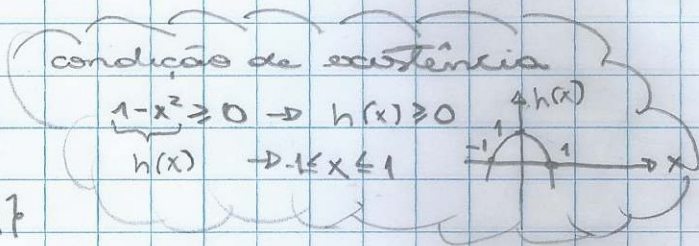 condição de existência
1-x² ≥ 0 → h(x) ≥ 0
h(x) → -1 ≤ x ≤ 1
h(x)
1
-1 1
x